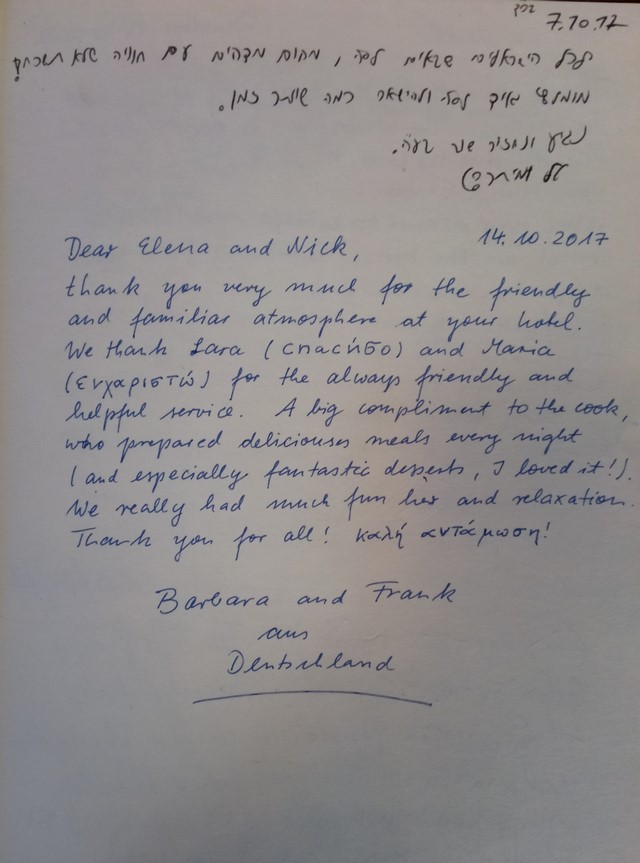 7.10.17
לכל הישראלים שבאים לפה, מקום מדהים עם חוויה שלא תשכחו
מומלץ מאוד לטייל ולהישאר כמה שיותר זמן.
נגיע ונחזור שוב בע"ה.
14.10.2017
Dear Elena and Nick,
thank you very much for the friendly
and familiar atmosphere at your hotel.
We thank Lara (спасибо) and Maria
(ευχαριστώ) for the always friendly and
helpful service. A big compliment to the cook,
who prepared deliciouses meals every night
(and especially fantastic desserts, I loved it!).
We really had much fun her and relaxation.
Thank you for all! καλή αντάμωση!
Barbara and Frank
aus
Deutschland